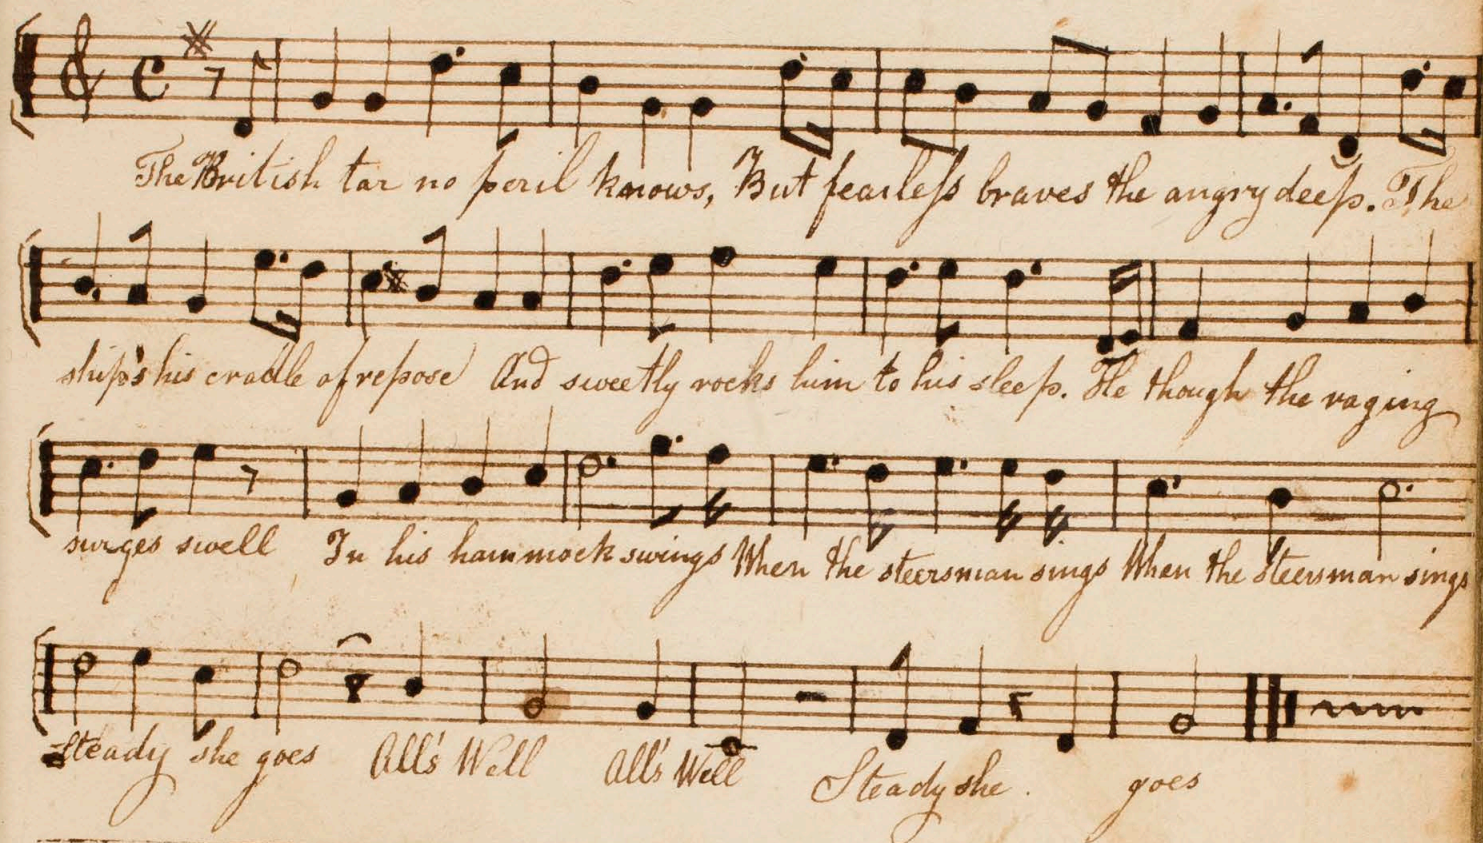 The British tar no peril knows, But fearless braves the angry deep. The
ship's his cradle of repose And sweetly rocks him to his sleep. He though the raging
surges swell In his hammock swings When the steersman sings When the Steersman sings
Steady she goes All's Well All's Well Steady she. goes